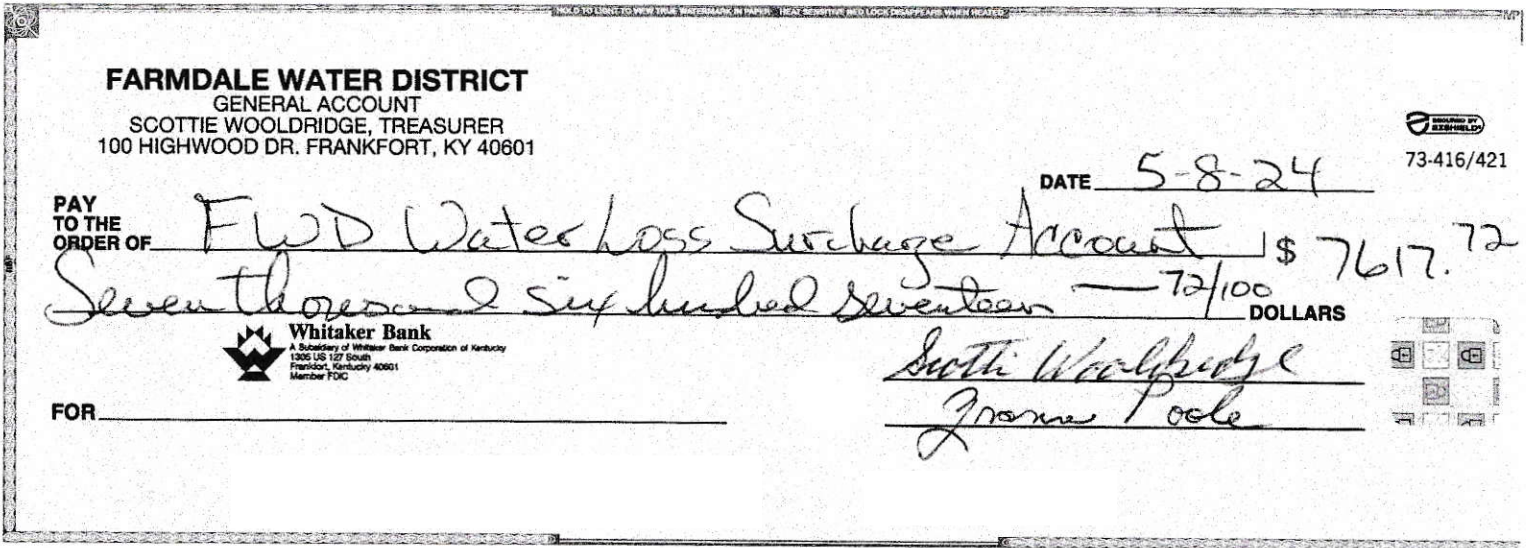 HOLD TO LIGHT TO VIEW TRUE WATERMARK IN PAPER. HEAT SENSITIVE RED LOCK DISAPPEARS WHEN HEATED.
FARMDALE WATER DISTRICT
GENERAL ACCOUNT
SCOTTIE WOOLDRIDGE, TREASURER
100 HIGHWOOD DR. FRANKFORT, KY 40601
SECURED BY
EZSHIELD
73-416/421
DATE 5-8-24
PAY
TO THE
ORDER OF FWD Water Loss Surcharge Account $ 7617.72
Seven thousand six hundred seventeen — 72/100 DOLLARS
Whitaker Bank
A Subsidiary of Whitaker Bank Corporation of Kentucky
1305 US 127 South
Frankfort, Kentucky 40601
Member FDIC
Scottie Wooldridge
FOR
Poole